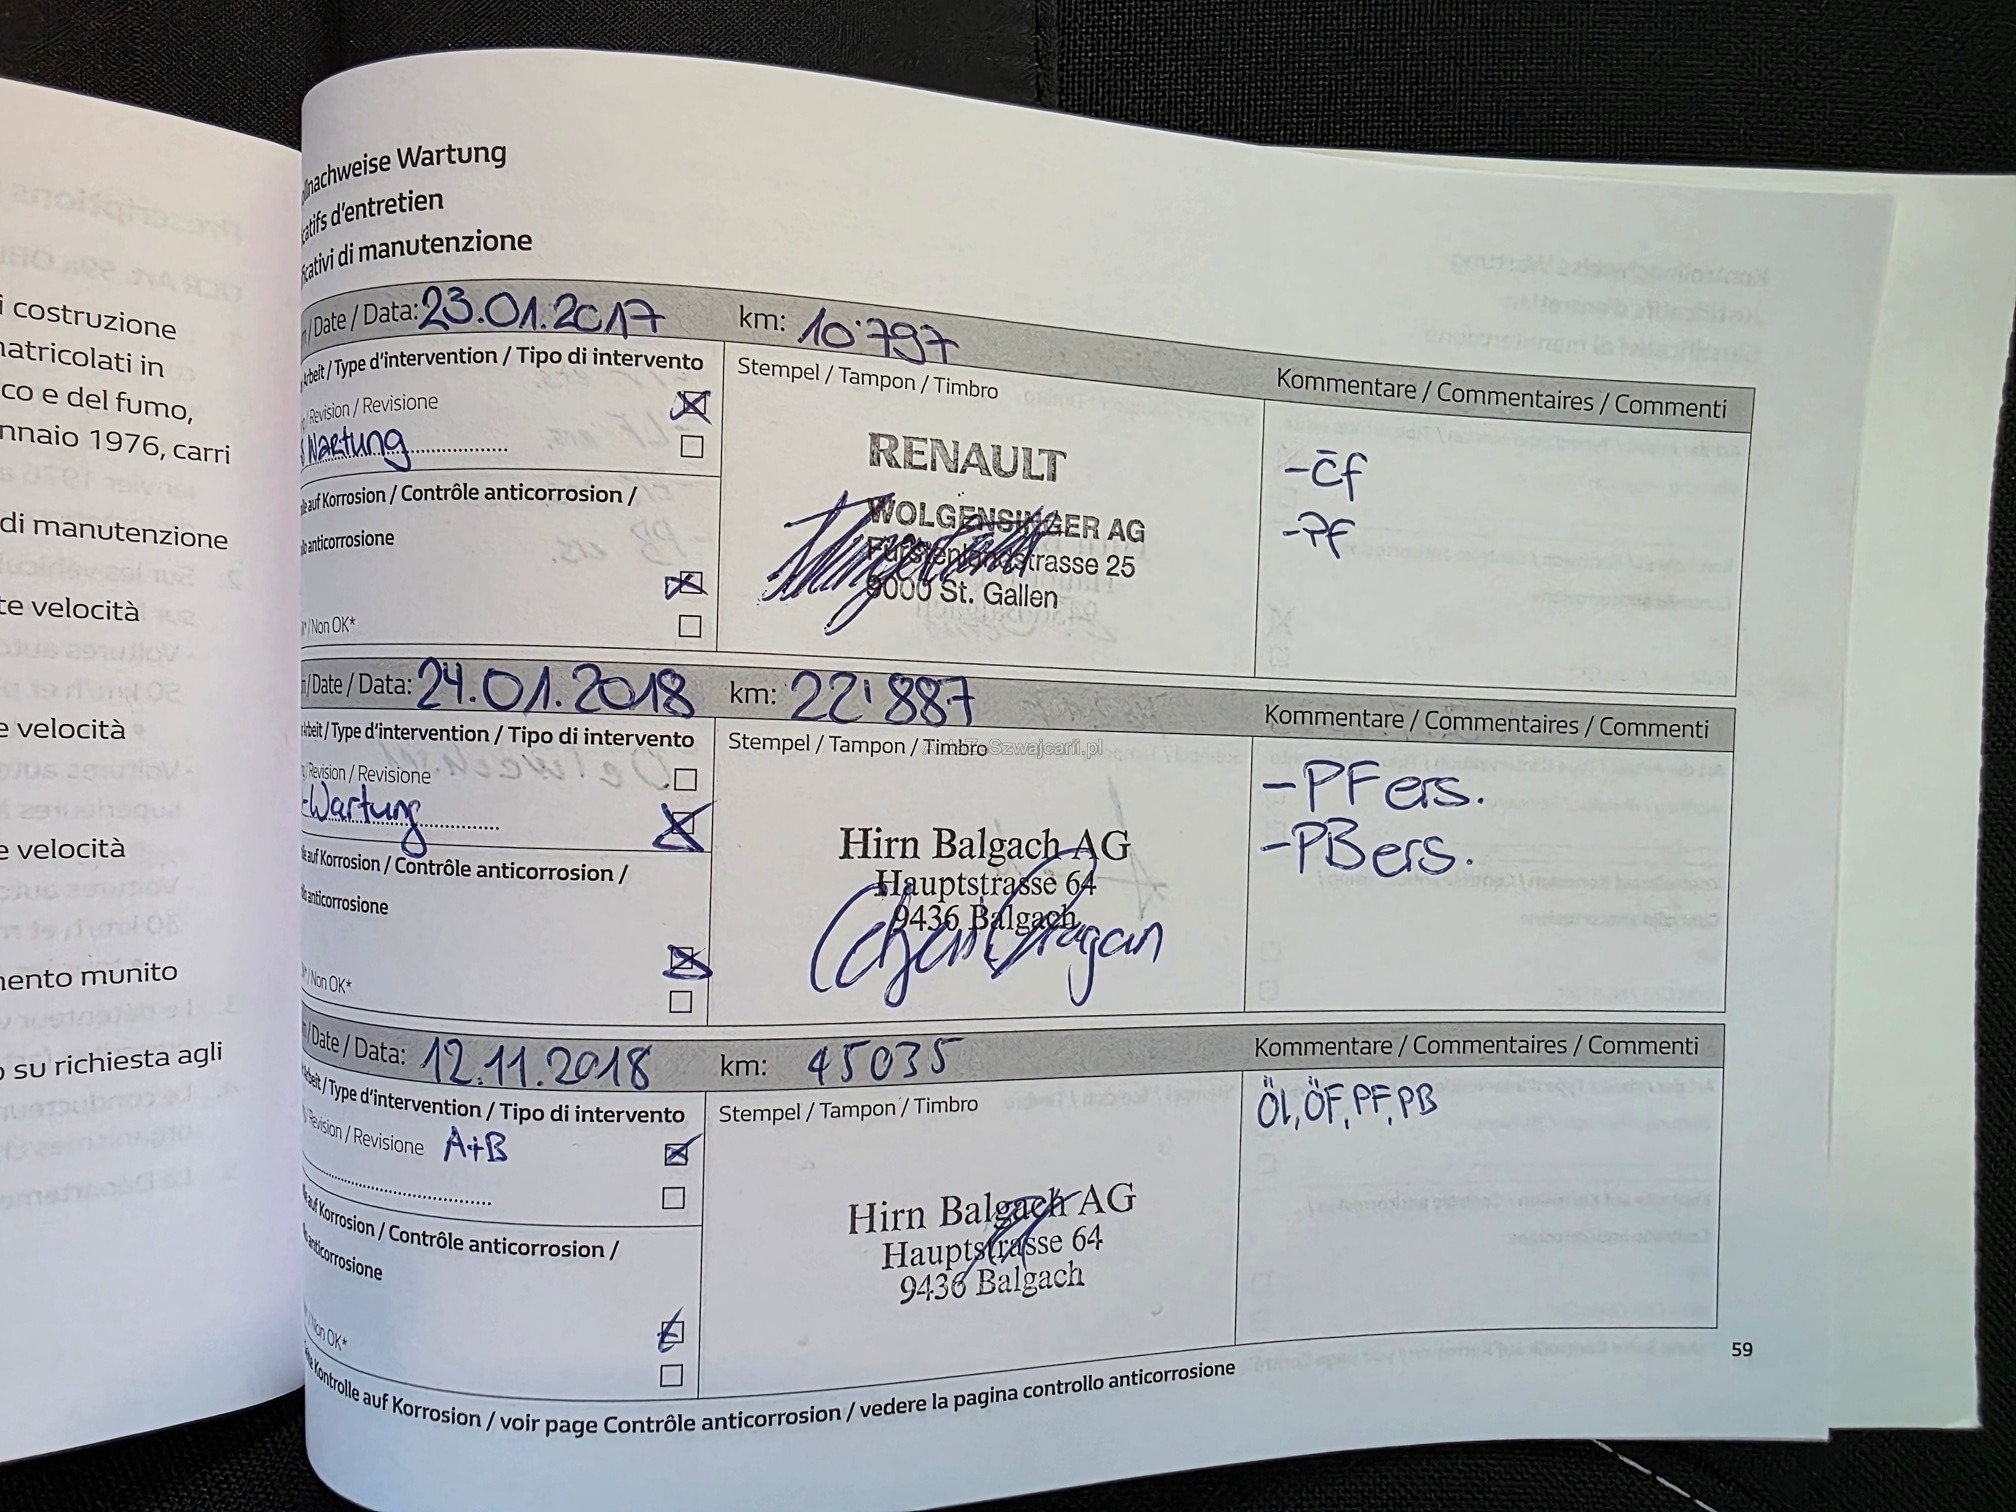 i costruzione
natricolati in
co e del fumo,
nnaio 1976, carri
di manutenzione
te velocità
e velocità
e velocità
mento munito
o su richiesta agli
nachweise Wartung
catifs d'entretien
ficativi di manutenzione
/Date / Data: 23.01.2017 km: 10'797
Arbeit / Type d'intervention / Tipo di intervento
Stempel / Tampon / Timbro
Kommentare / Commentaires / Commenti
/ Revision / Revisione
Wartung
RENAULT
WOLGENSINGER AG
Fürstenlandstrasse 25
9000 St. Gallen
-PF
auf Korrosion / Contrôle anticorrosion /
anticorrosione
/ Non OK*
/Date / Data: 24.01.2018 km: 22'887
Kommentare / Commentaires / Commenti
Arbeit / Type d'intervention / Tipo di intervento
Stempel / Tampon / Timbro
AutaZeSzwajcarii.pl
/ Revision / Revisione
-Wartung
Hirn Balgach AG
Hauptstrasse 64
9436 Balgach
-PF ers.
-PB ers.
auf Korrosion / Contrôle anticorrosion /
anticorrosione
/ Non OK*
/Date / Data: 12.11.2018 km: 45035
Kommentare / Commentaires / Commenti
Arbeit / Type d'intervention / Tipo di intervento
Stempel / Tampon / Timbro
Revision / Revisione A+B
Hirn Balgach AG
Hauptstrasse 64
9436 Balgach
Öl, ÖF, PF, PB
auf Korrosion / Contrôle anticorrosion /
anticorrosione
/ Non OK*
Kontrolle auf Korrosion / voir page Contrôle anticorrosion / vedere la pagina controllo anticorrosione
59